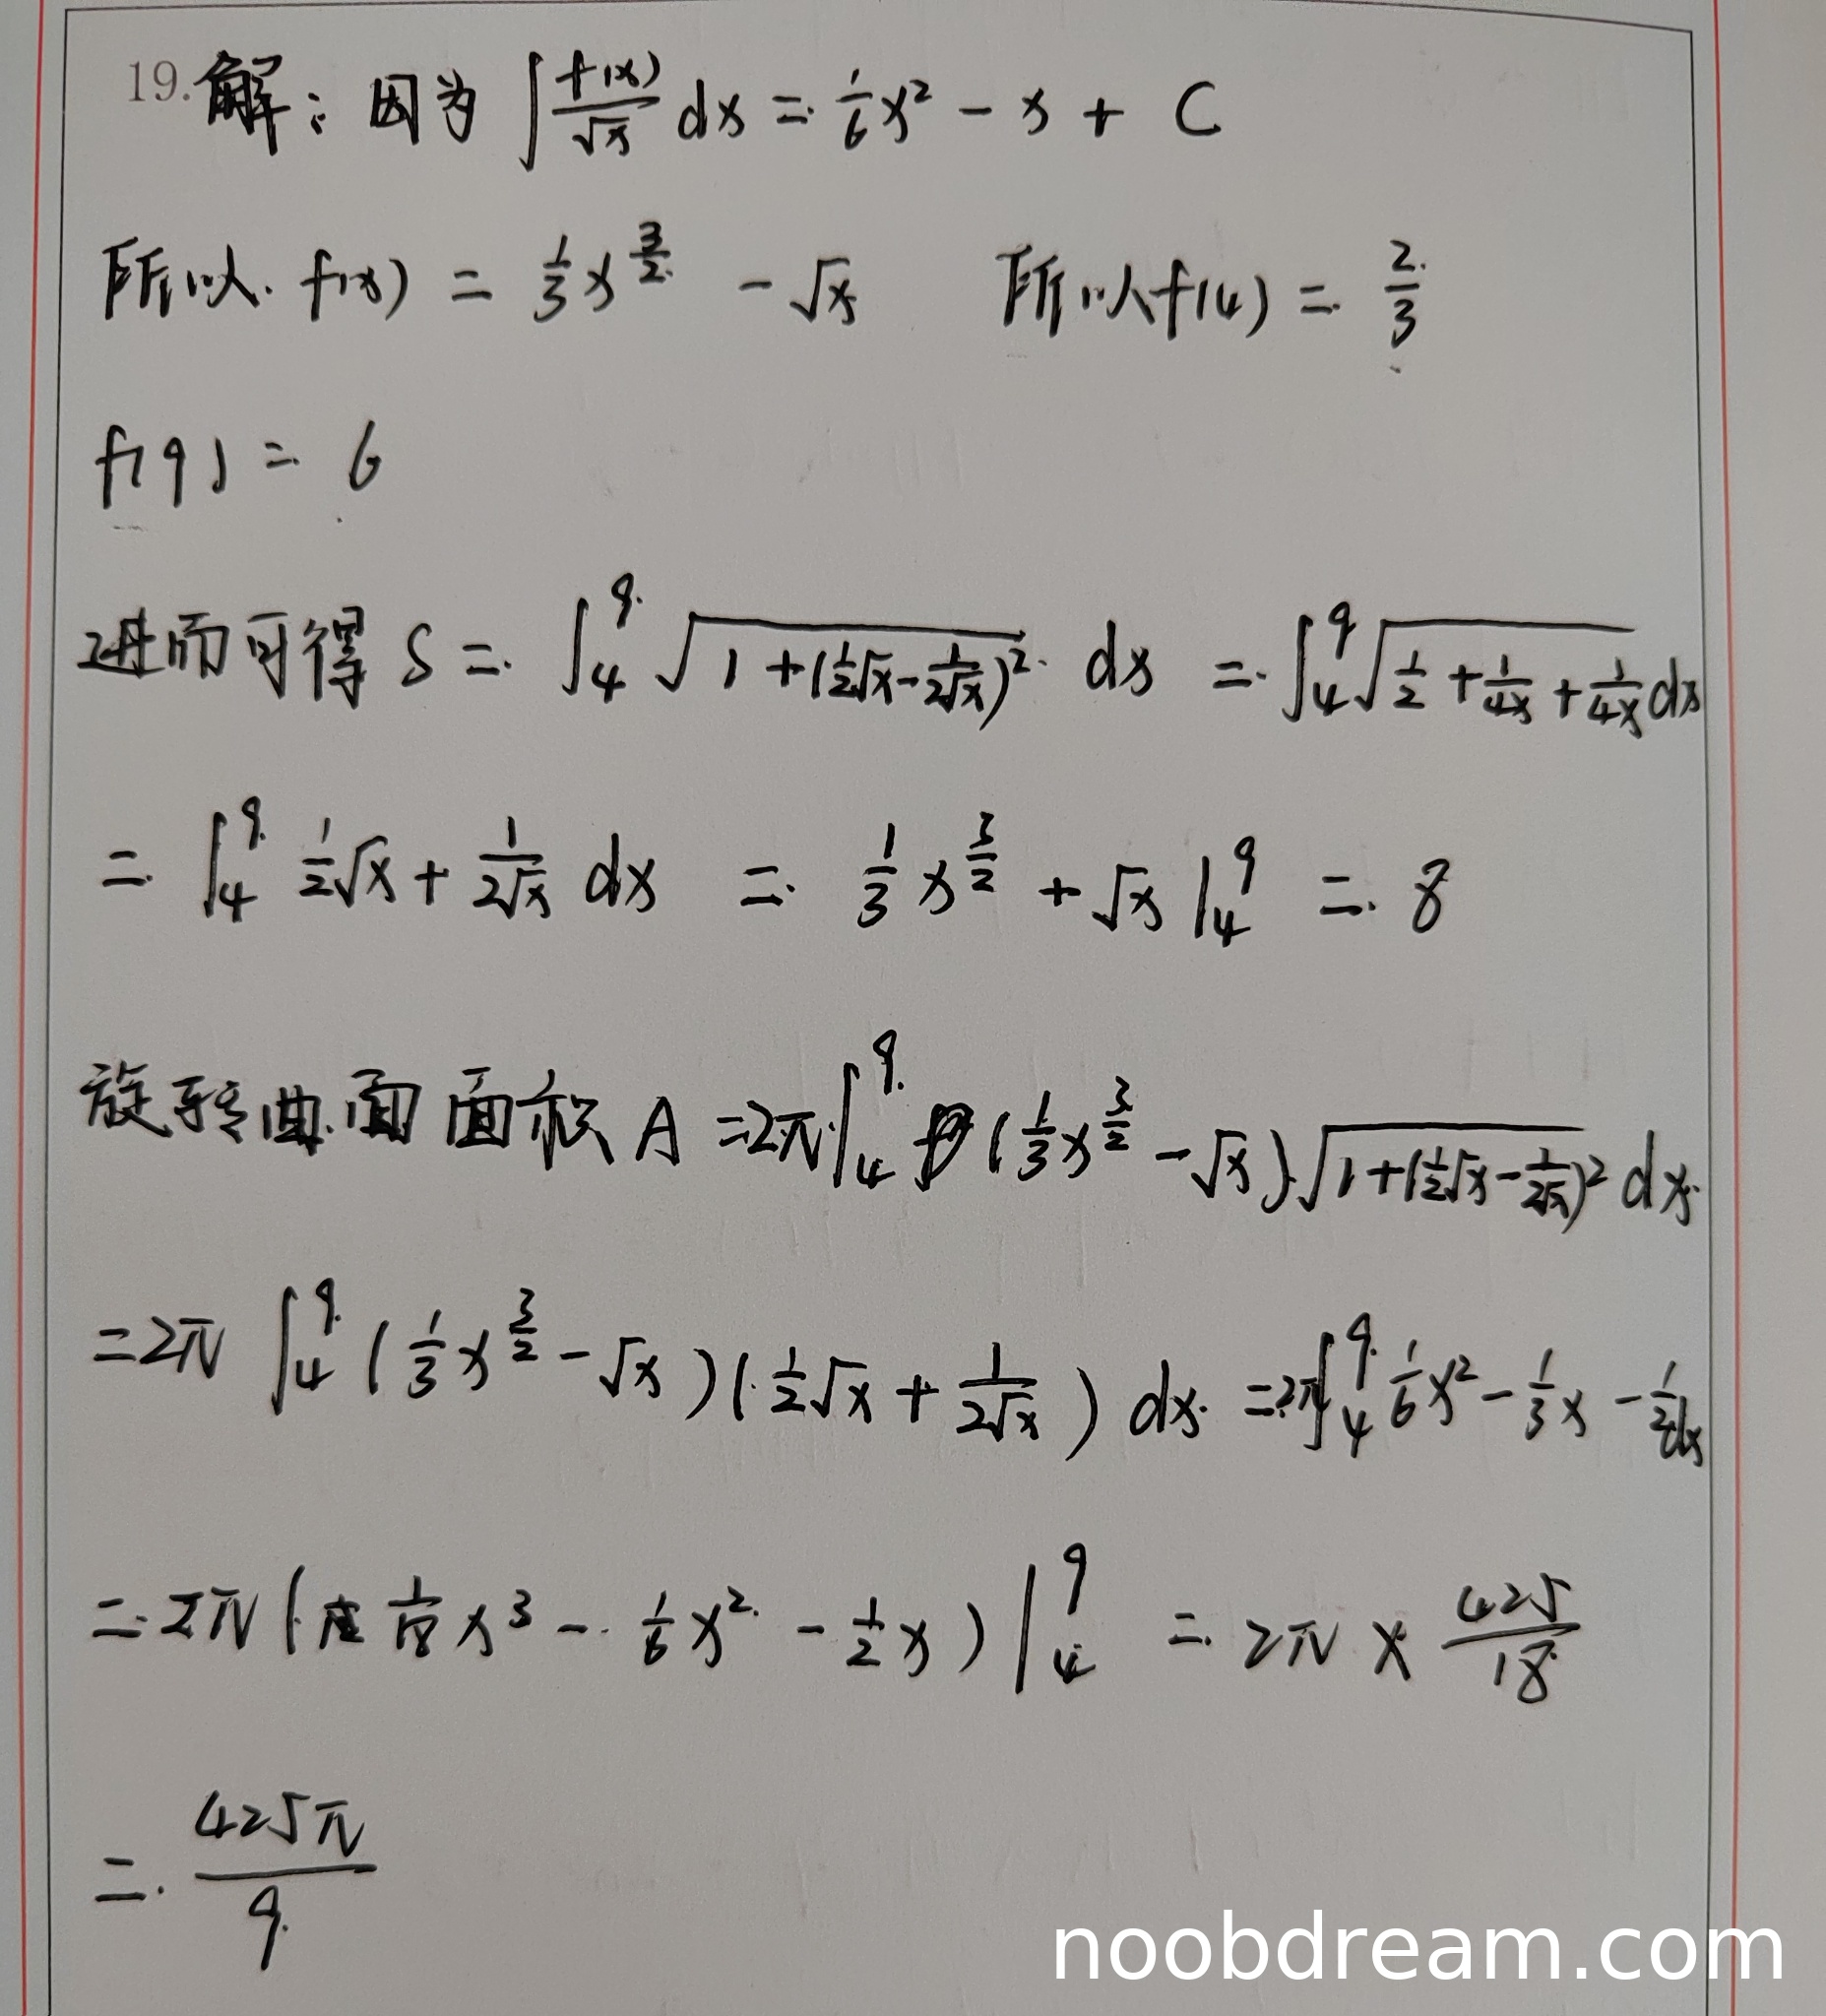 19.解：因为 ∫ f(x)/√x dx = 1/6 x² - x + C
所以 f(x) = 1/3 x^(3/2) - √x 所以 f(4) = 2/3
f(9) = 6
进而可得 S = ∫₄⁹ √(1+(1/2√x - 1/(2√x))²) dx = ∫₄⁹ √(1/2 + 1/(4x) + 1/(4x)) dx
= ∫₄⁹ 1/2√x + 1/(2√x) dx = 1/3 x^(3/2) + √x |₄⁹ = 8
旋转曲面面积 A = 2π ∫₄⁹ (1/3 x^(3/2) - √x)·√(1+(1/2√x - 1/(2√x))²) dx
= 2π ∫₄⁹ (1/3 x^(3/2) - √x)(1/2√x + 1/(2√x)) dx = 2π ∫₄⁹ 1/6 x² - 1/3 x - 1/2 dx
= 2π (1/18 x³ - 1/6 x² - 1/2 x) |₄⁹ = 2π × 425/18
= 425π/9
noobdream.com